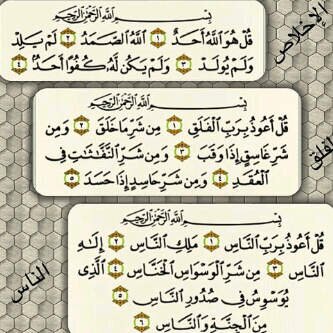 بِسْمِ اللَّهِ الرَّحْمَٰنِ الرَّحِيمِ
الإخلاص
قُلْ هُوَ اللَّهُ أَحَدٌ ١ اللَّهُ الصَّمَدُ ٢ لَمْ يَلِدْ
وَلَمْ يُولَدْ ٣ وَلَمْ يَكُن لَّهُ كُفُوًا أَحَدٌ ٤
بِسْمِ اللَّهِ الرَّحْمَٰنِ الرَّحِيمِ
قُلْ أَعُوذُ بِرَبِّ الْفَلَقِ ١ مِن شَرِّ مَا خَلَقَ ٢ وَمِن
شَرِّ غَاسِقٍ إِذَا وَقَبَ ٣ وَمِن شَرِّ النَّفَّاثَاتِ فِي
الْعُقَدِ ٤ وَمِن شَرِّ حَاسِدٍ إِذَا حَسَدَ ٥
بِسْمِ اللَّهِ الرَّحْمَٰنِ الرَّحِيمِ
الناس
قُلْ أَعُوذُ بِرَبِّ النَّاسِ ١ مَلِكِ النَّاسِ ٢ إِلَٰهِ
النَّاسِ ٣ مِن شَرِّ الْوَسْوَاسِ الْخَنَّاسِ ٤ الَّذِي
يُوَسْوِسُ فِي صُدُورِ النَّاسِ ٥
مِنَ الْجِنَّةِ وَالنَّاسِ ٦